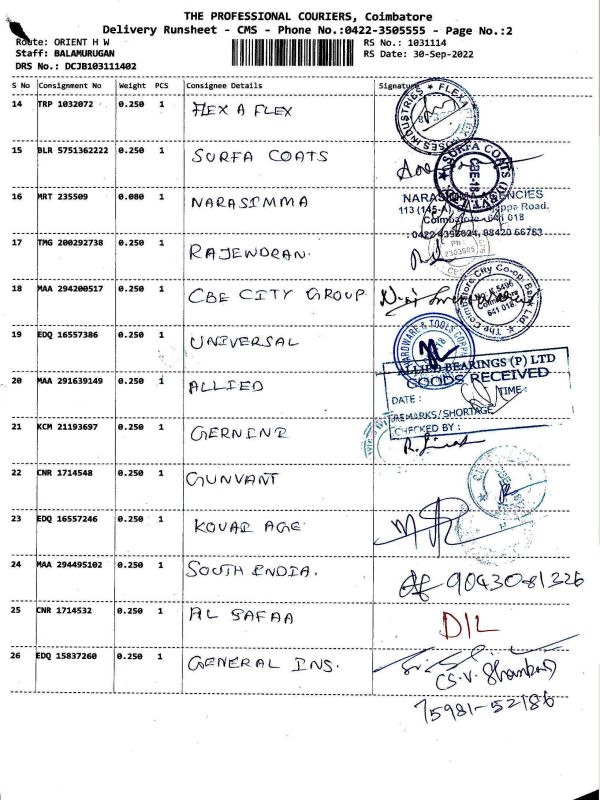 THE PROFESSIONAL COURIERS, Coimbatore
Delivery Runsheet - CMS - Phone No.:0422-3505555 - Page No.:2
Route: ORIENT H W
RS No.: 1031114
Staff: BALAMURUGAN
RS Date: 30-Sep-2022
DRS No.: DCJB103111402
S No Consignment No Weight PCS Consignee Details Signature
14 TRP 1032072 0.250 1 FLEX A FLEX
15 BLR 5751362222 0.250 1 SURFA COATS
SURFA COATS
CBE-18
16 MRT 235509 0.080 1 NARASIMMA
AGENCIES
113 (145-A) Road,
Coimbatore - 641 018
98420 66763
17 TMG 200292738 0.250 1 RAJENDRAN
18 MAA 294200517 0.250 1 CBE CITY GROUP
The Coimbatore City Co-op. Ltd
Coimbatore
641 018.
19 EDQ 16557386 0.250 1 UNIVERSAL
HARDWARE & TOOLS
20 MAA 291639149 0.250 1 ALLIED
ALLIED BEARINGS (P) LTD
GOODS RECEIVED
DATE : TIME :
REMARKS/SHORTAGE
CHECKED BY :
21 KCM 21193697 0.250 1 GERNINI
22 CNR 1714548 0.250 1 GUNVANT
23 EDQ 16557246 0.250 1 KOVAI AGE
24 MAA 294495102 0.250 1 SOUTH INDIA.
90430-81326
25 CNR 1714532 0.250 1 AL SAFAA
D/L
26 EDQ 15837260 0.250 1 GENERAL INS.
75981-52186